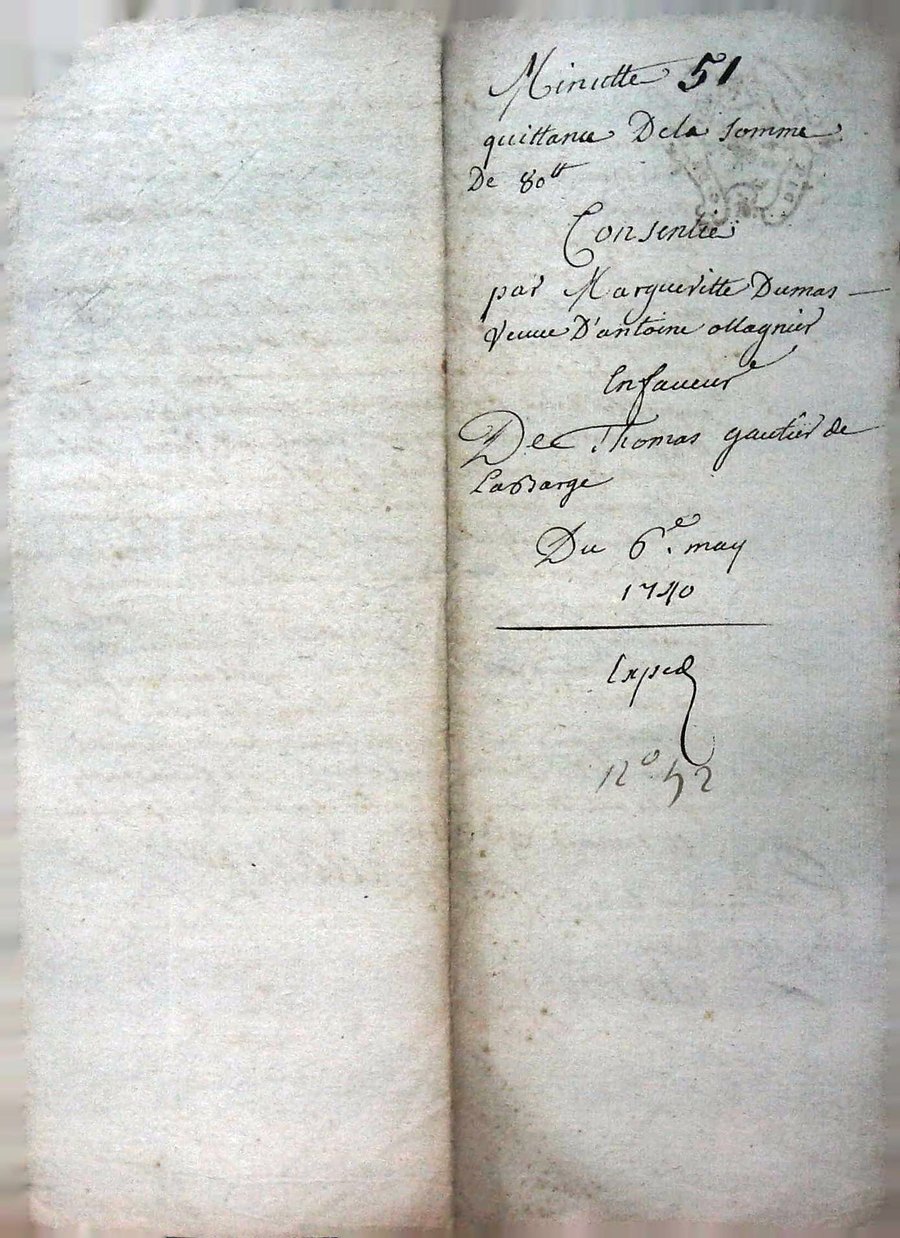 Minutte 51
quittance Dela somme
De 80tt
Consentie
par Margueritte Dumas
Veuue D'antoine Magnier
En faueur
De Thomas gautier de
LaBarge
Du 6e. may
1740
Exped
No. 52